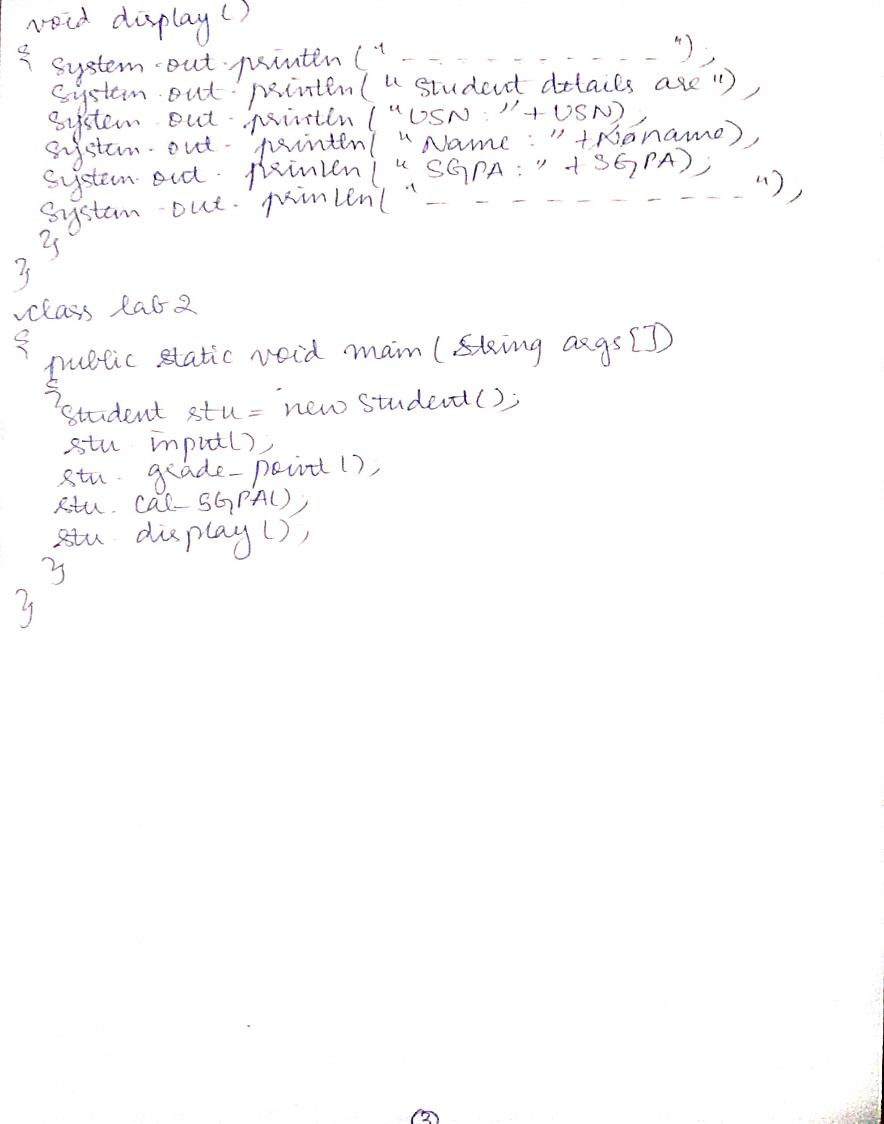 void display()
{ System.out.println("- - - - - - - - - -");
System.out.println("Student details are");
System.out.println("USN:"+USN);
System.out.println("Name:"+name);
System.out.println("SGPA:"+SGPA);
System.out.println("- - - - - - - - - - -");
}
}
class lab2
{
public static void main(String args[])
{
Student stu = new Student();
stu.input();
stu.grade_point();
stu.cal_SGPA();
stu.display();
}
}
3